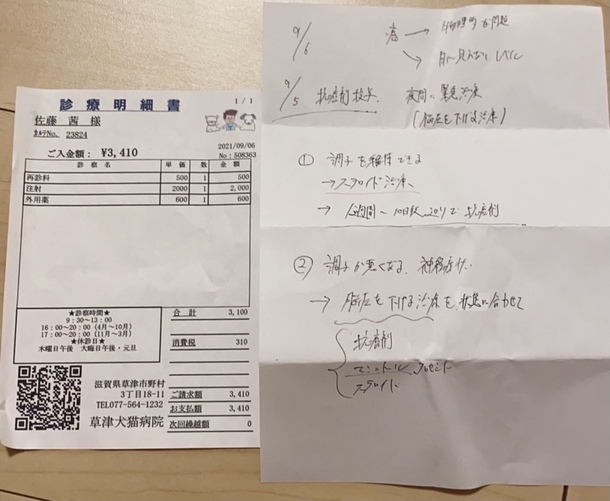 診療明細書
1/1
佐藤 茜 様
カルテNo. 23824
2021/09/06
ご入金額: ¥3,410
No:508363
診療名 単価 数 金額
再診料 500 1 500
注射 2000 1 2,000
外用薬 600 1 600
★診察時間★
9:30~13:00
16:00~20:00 (4月~10月)
17:00~20:00 (11月~3月)
★休診日★
木曜日午後 大晦日午後・元旦
合計 3,100
消費税 310
滋賀県草津市野村
3丁目18-11
TEL077-564-1232
草津犬猫病院
ご請求額 3,410
お支払額 3,410
次回繰越額 0
9/6 →物理的な問題
→目に見えないレベル
9/5 抗癌剤投与 夜間に緊急治療
(脳圧を下げる治療)
① 調子を維持できる
→ステロイド治療
→ 1週間~10日 抗癌剤
② 調子が悪くなる 神経症状
→ 脳圧を下げる治療を、状態に合わせて
抗癌剤
ステロイド